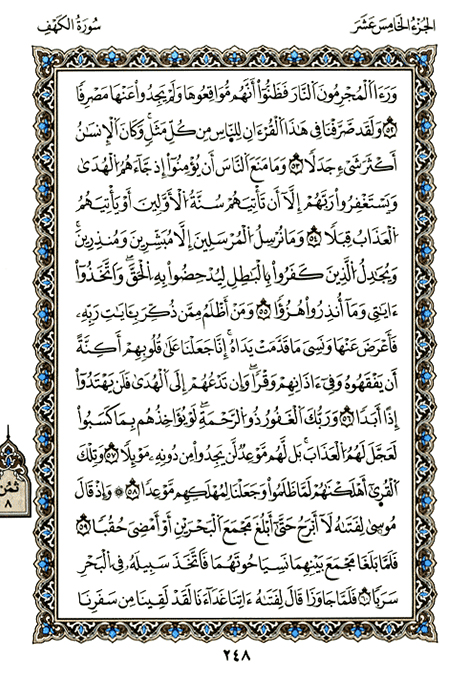 الجزء الخامس عشر
سورة الكهف
وَرَءَا ٱلْمُجْرِمُونَ ٱلنَّارَ فَظَنُّوٓاْ أَنَّهُم مُّوَاقِعُوهَا وَلَمْ يَجِدُواْ عَنْهَا مَصْرِفًا
٥٢ وَلَقَدْ صَرَّفْنَا فِي هَٰذَا ٱلْقُرْءَانِ لِلنَّاسِ مِن كُلِّ مَثَلٍ وَكَانَ ٱلْإِنسَٰنُ
أَكْثَرَ شَيْءٍ جَدَلًا ٥٣ وَمَا مَنَعَ ٱلنَّاسَ أَن يُؤْمِنُوٓاْ إِذْ جَآءَهُمُ ٱلْهُدَىٰ
وَيَسْتَغْفِرُواْ رَبَّهُمْ إِلَّآ أَن تَأْتِيَهُمْ سُنَّةُ ٱلْأَوَّلِينَ أَوْ يَأْتِيَهُمُ
ٱلْعَذَابُ قِبَلًا ٥٤ وَمَا نُرْسِلُ ٱلْمُرْسَلِينَ إِلَّا مُبَشِّرِينَ وَمُنذِرِينَ
وَيُجَٰدِلُ ٱلَّذِينَ كَفَرُواْ بِٱلْبَٰطِلِ لِيُدْحِضُواْ بِهِ ٱلْحَقَّ وَٱتَّخَذُوٓاْ
ءَايَٰتِي وَمَآ أُنذِرُواْ هُزُؤًا ٥٥ وَمَنْ أَظْلَمُ مِمَّن ذُكِّرَ بِـَٔايَٰتِ رَبِّهِۦ
فَأَعْرَضَ عَنْهَا وَنَسِيَ مَا قَدَّمَتْ يَدَاهُ إِنَّا جَعَلْنَا عَلَىٰ قُلُوبِهِمْ أَكِنَّةً
أَن يَفْقَهُوهُ وَفِيٓ ءَاذَانِهِمْ وَقْرًا وَإِن تَدْعُهُمْ إِلَى ٱلْهُدَىٰ فَلَن يَهْتَدُوٓاْ
إِذًا أَبَدًا ٥٦ وَرَبُّكَ ٱلْغَفُورُ ذُو ٱلرَّحْمَةِ لَوْ يُؤَاخِذُهُم بِمَا كَسَبُواْ
لَعَجَّلَ لَهُمُ ٱلْعَذَابَ بَل لَّهُم مَّوْعِدٌ لَّن يَجِدُواْ مِن دُونِهِۦ مَوْئِلًا ٥٧ وَتِلْكَ
ٱلْقُرَىٰٓ أَهْلَكْنَٰهُمْ لَمَّا ظَلَمُواْ وَجَعَلْنَا لِمُهْلَكِهِم مَّوْعِدًا ٥٨ ۞ وَإِذْ قَالَ
مُوسَىٰ لِفَتَىٰهُ لَآ أَبْرَحُ حَتَّىٰٓ أَبْلُغَ مَجْمَعَ ٱلْبَحْرَيْنِ أَوْ أَمْضِيَ حُقُبًا ٥٩
فَلَمَّا بَلَغَا مَجْمَعَ بَيْنِهِمَا نَسِيَا حُوتَهُمَا فَٱتَّخَذَ سَبِيلَهُۥ فِي ٱلْبَحْرِ
سَرَبًا ٦٠ فَلَمَّا جَاوَزَا قَالَ لِفَتَىٰهُ ءَاتِنَا غَدَآءَنَا لَقَدْ لَقِينَا مِن سَفَرِنَا
ثمن
٨
٢٤٨